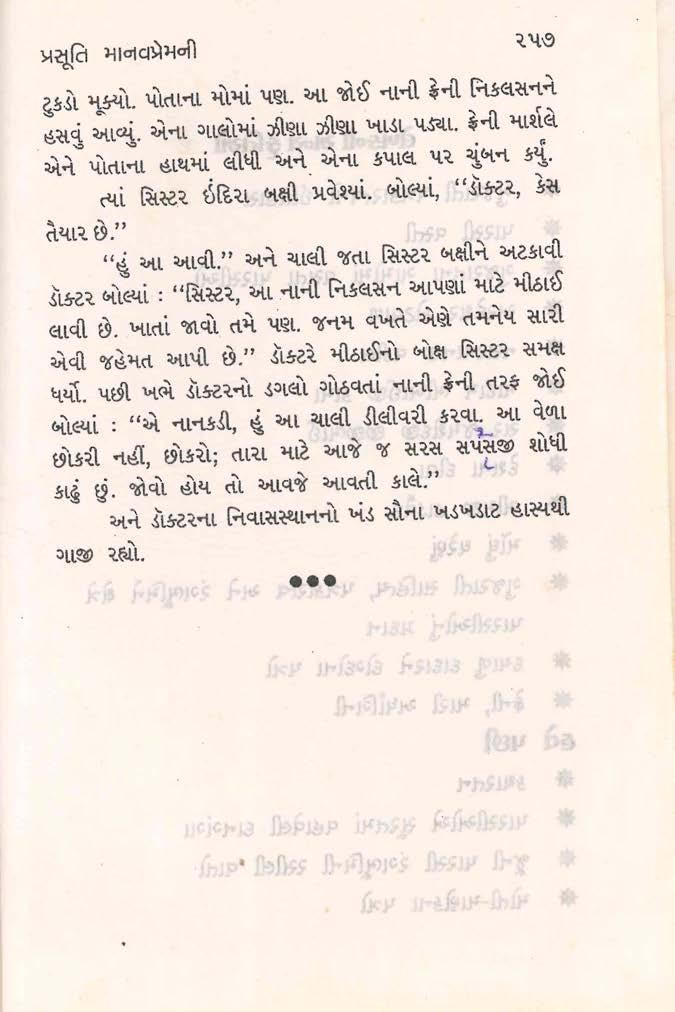 પ્રસૂતિ માનવપ્રેમની
૨૫૭
ટુકડો મૂક્યો. પોતાના મોમાં પણ. આ જોઈ નાની ફ્રેની નિકલસનને
હસવું આવ્યું. એના ગાલોમાં ઝીણા ઝીણા ખાડા પડ્યા. ફ્રેની માર્શલે
એને પોતાના હાથમાં લીધી અને એના કપાલ પર ચુંબન કર્યું.
ત્યાં સિસ્ટર ઇંદિરા બક્ષી પ્રવેશ્યાં. બોલ્યાં, “ડૉક્ટર, કેસ
તૈયાર છે.”
“હું આ આવી.” અને ચાલી જતા સિસ્ટર બક્ષીને અટકાવી
ડૉક્ટર બોલ્યાં : “સિસ્ટર, આ નાની નિકલસન આપણાં માટે મીઠાઈ
લાવી છે. ખાતાં જાવો તમે પણ. જનમ વખતે એણે તમનેય સારી
એવી જહેમત આપી છે.” ડૉક્ટરે મીઠાઈનો બોક્ષ સિસ્ટર સમક્ષ
ધર્યો. પછી ખભે ડૉક્ટરનો ડગલો ગોઠવતાં નાની ફ્રેની તરફ જોઈ
બોલ્યાં : “એ નાનકડી, હું આ ચાલી ડીલીવરી કરવા. આ વેળા
છોકરી નહીં, છોકરો; તારા માટે આજે જ સરસ શોધી
કાઢું છું. જોવો હોય તો આવજે આવતી કાલે.”
અને ડૉક્ટરના નિવાસસ્થાનનો ખંડ સૌના ખડખડાટ હાસ્યથી
ગાજી રહ્યો.
●●●